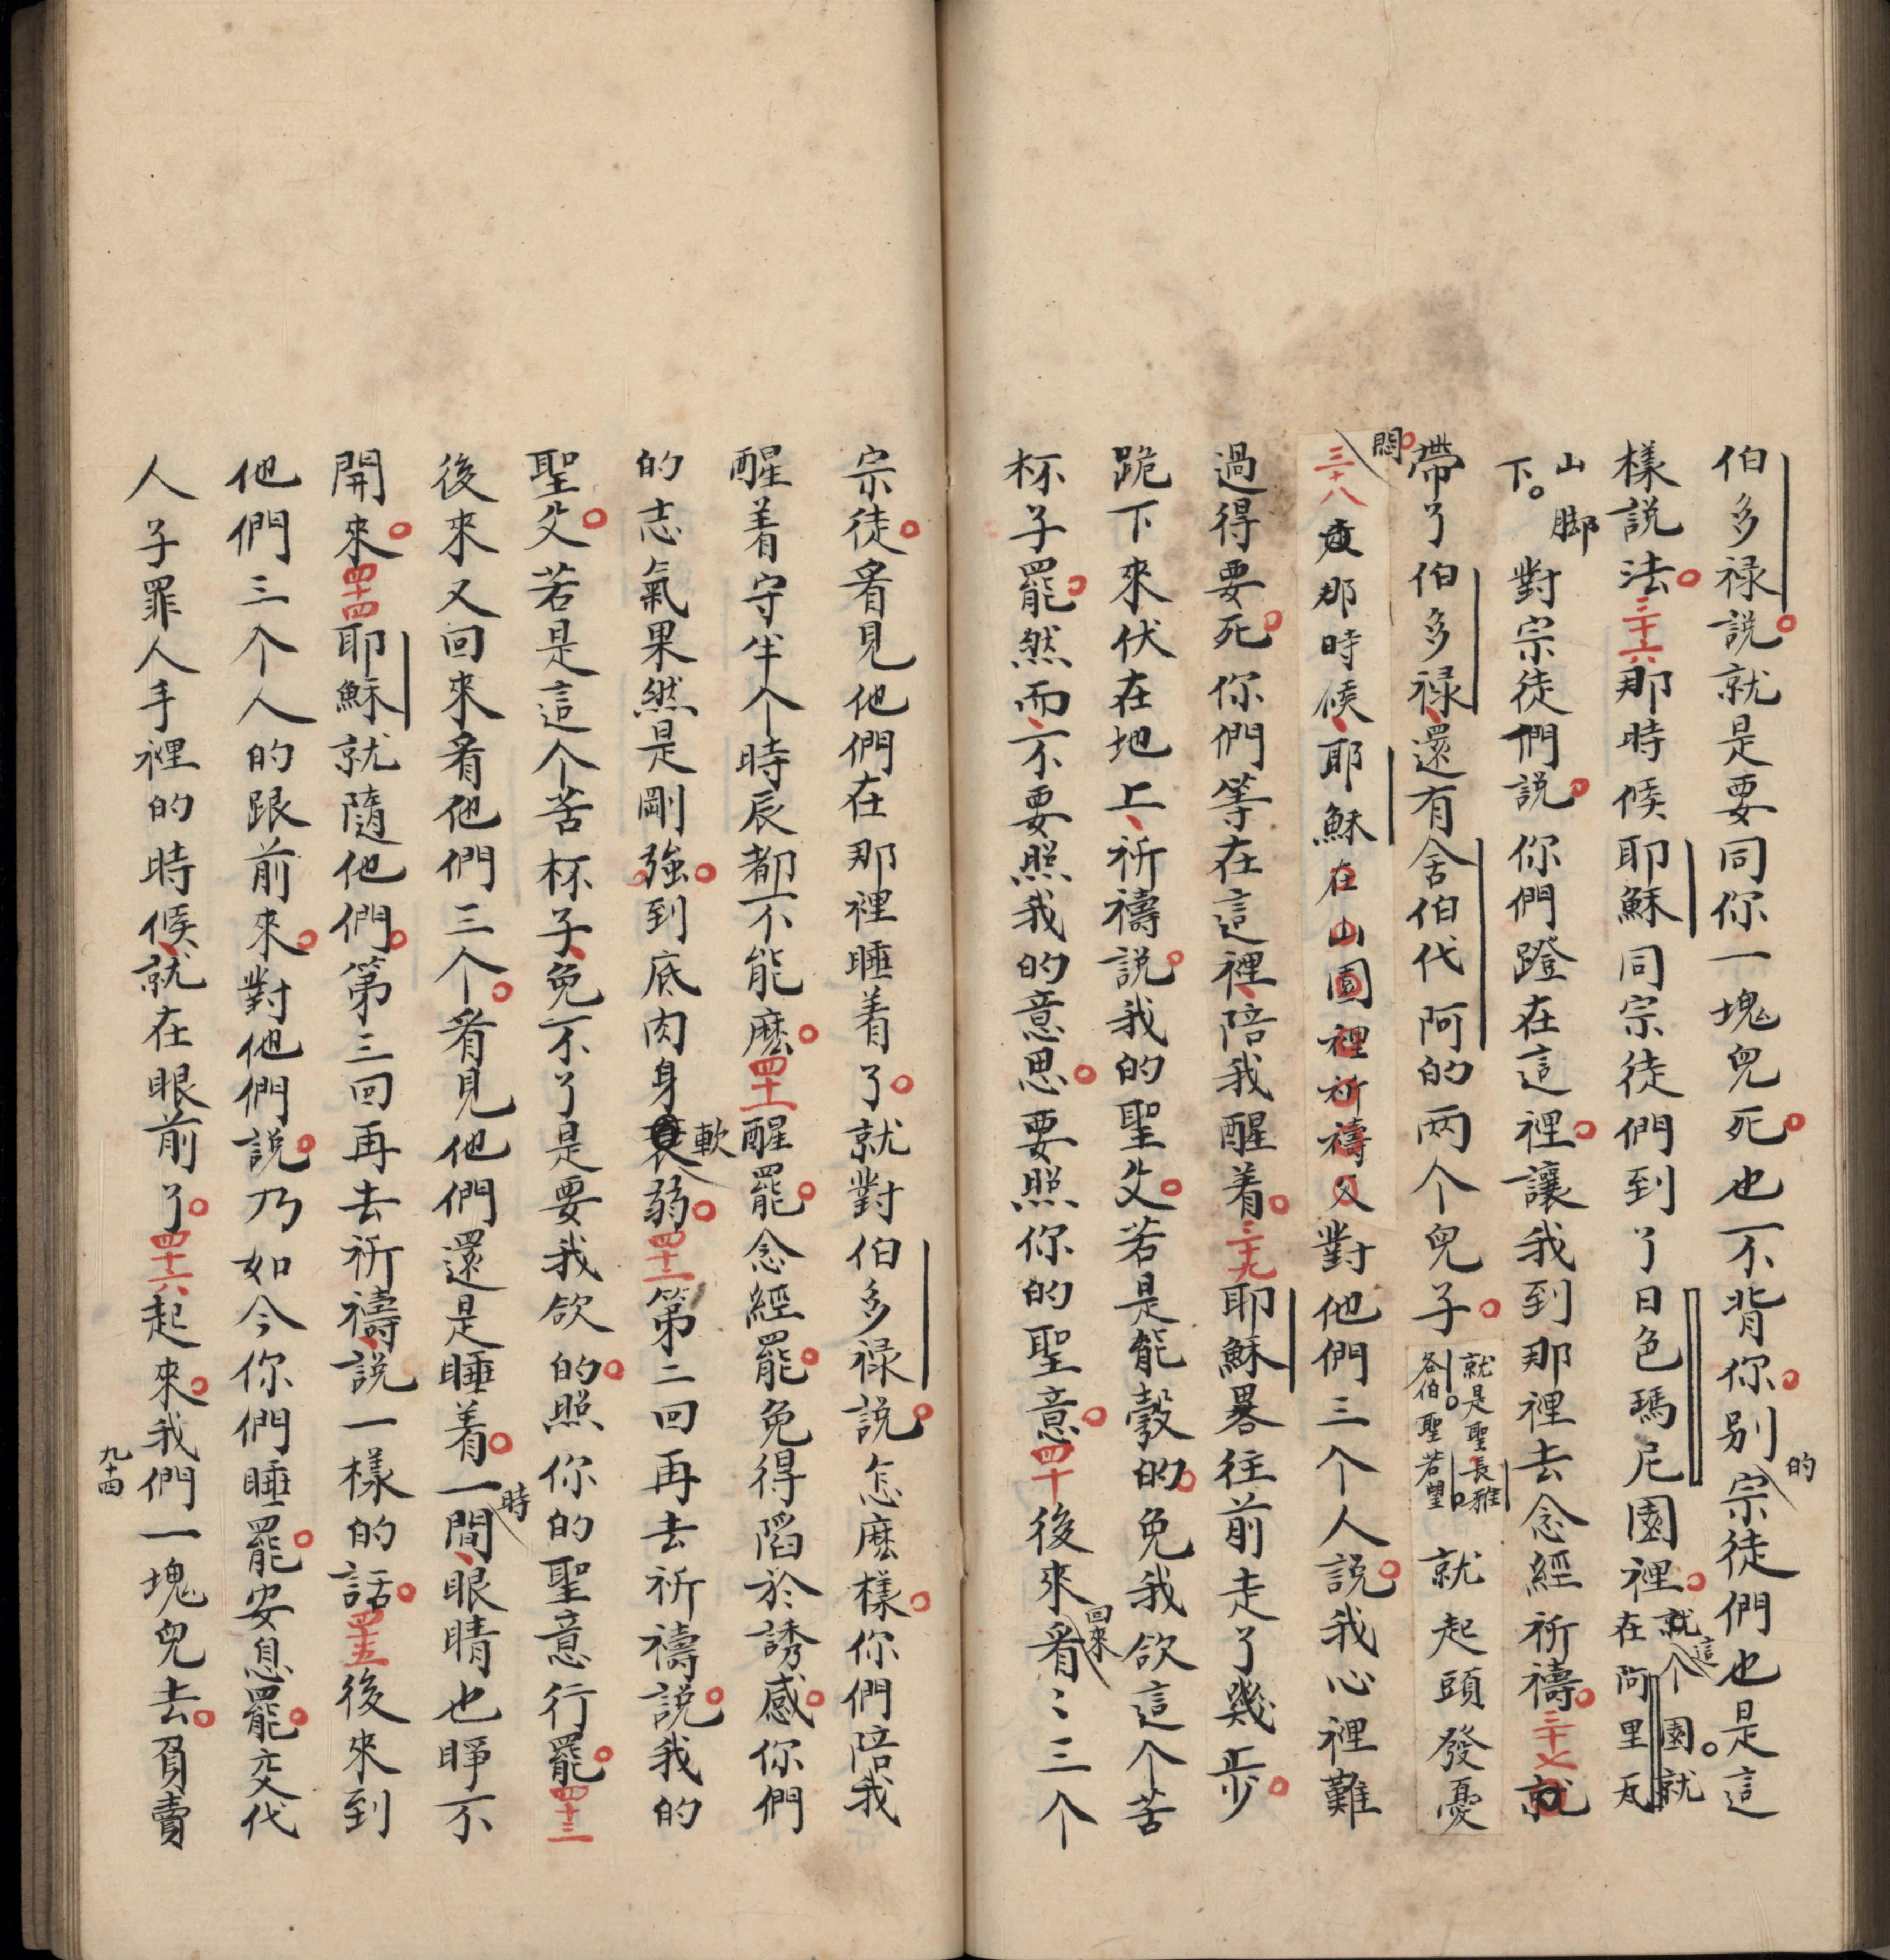 伯多禄說就是要同你一塊兒死也不背你别的宗徒們也是這
樣說法三十六那時候耶穌同宗徒們到了日色瑪尼園裡這个園就在阿里瓦
山脚下對宗徒們說你們蹬在這裡讓我到那裡去念經祈禱三十七就
帶了伯多禄還有舍伯代阿的两个兒子就是聖長雅各伯聖若望就起頭發憂
悶三十八那時候耶穌對他們三个人說我心裡難
過得要死你們等在這裡陪我醒着三十九耶穌畧往前走了幾步
跪下來伏在地上祈禱說我的聖父若是能彀的免我欲這个苦
杯子罷然而不要照我的意思要照你的聖意四十後來回來看三个
宗徒看見他們在那裡睡着了就對伯多禄說怎麽樣你們陪我
醒着守半个時辰都不能麽四十一醒罷念經罷免得陷於誘感你們
的志氣果然是剛強到底肉身軟弱四十二第二回再去祈禱說我的
聖父若是這个苦杯子免不了是要我欲的照你的聖意行罷四十三
後來又回來看他們三个看見他們還是睡着一時間眼睛也睜不
開來四十四耶穌就隨他們第三回再去祈禱說一樣的話四十五後來到
他們三个人的跟前來對他們說乃如今你們睡罷安息罷交代
人子罪人手裡的時候就在眼前了四十六起來我們一塊兒去負賣
九十四